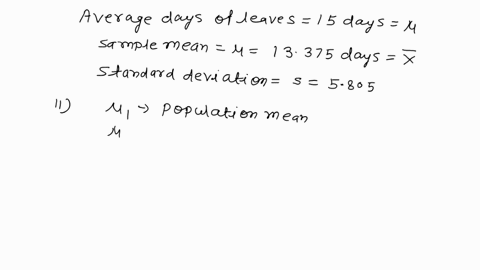 Average days of leaves = 15 days = μ
sample mean = μ = 13.375 days = x̄
Standard deviation = s = 5.805
11) μ₁ → population mean
μ